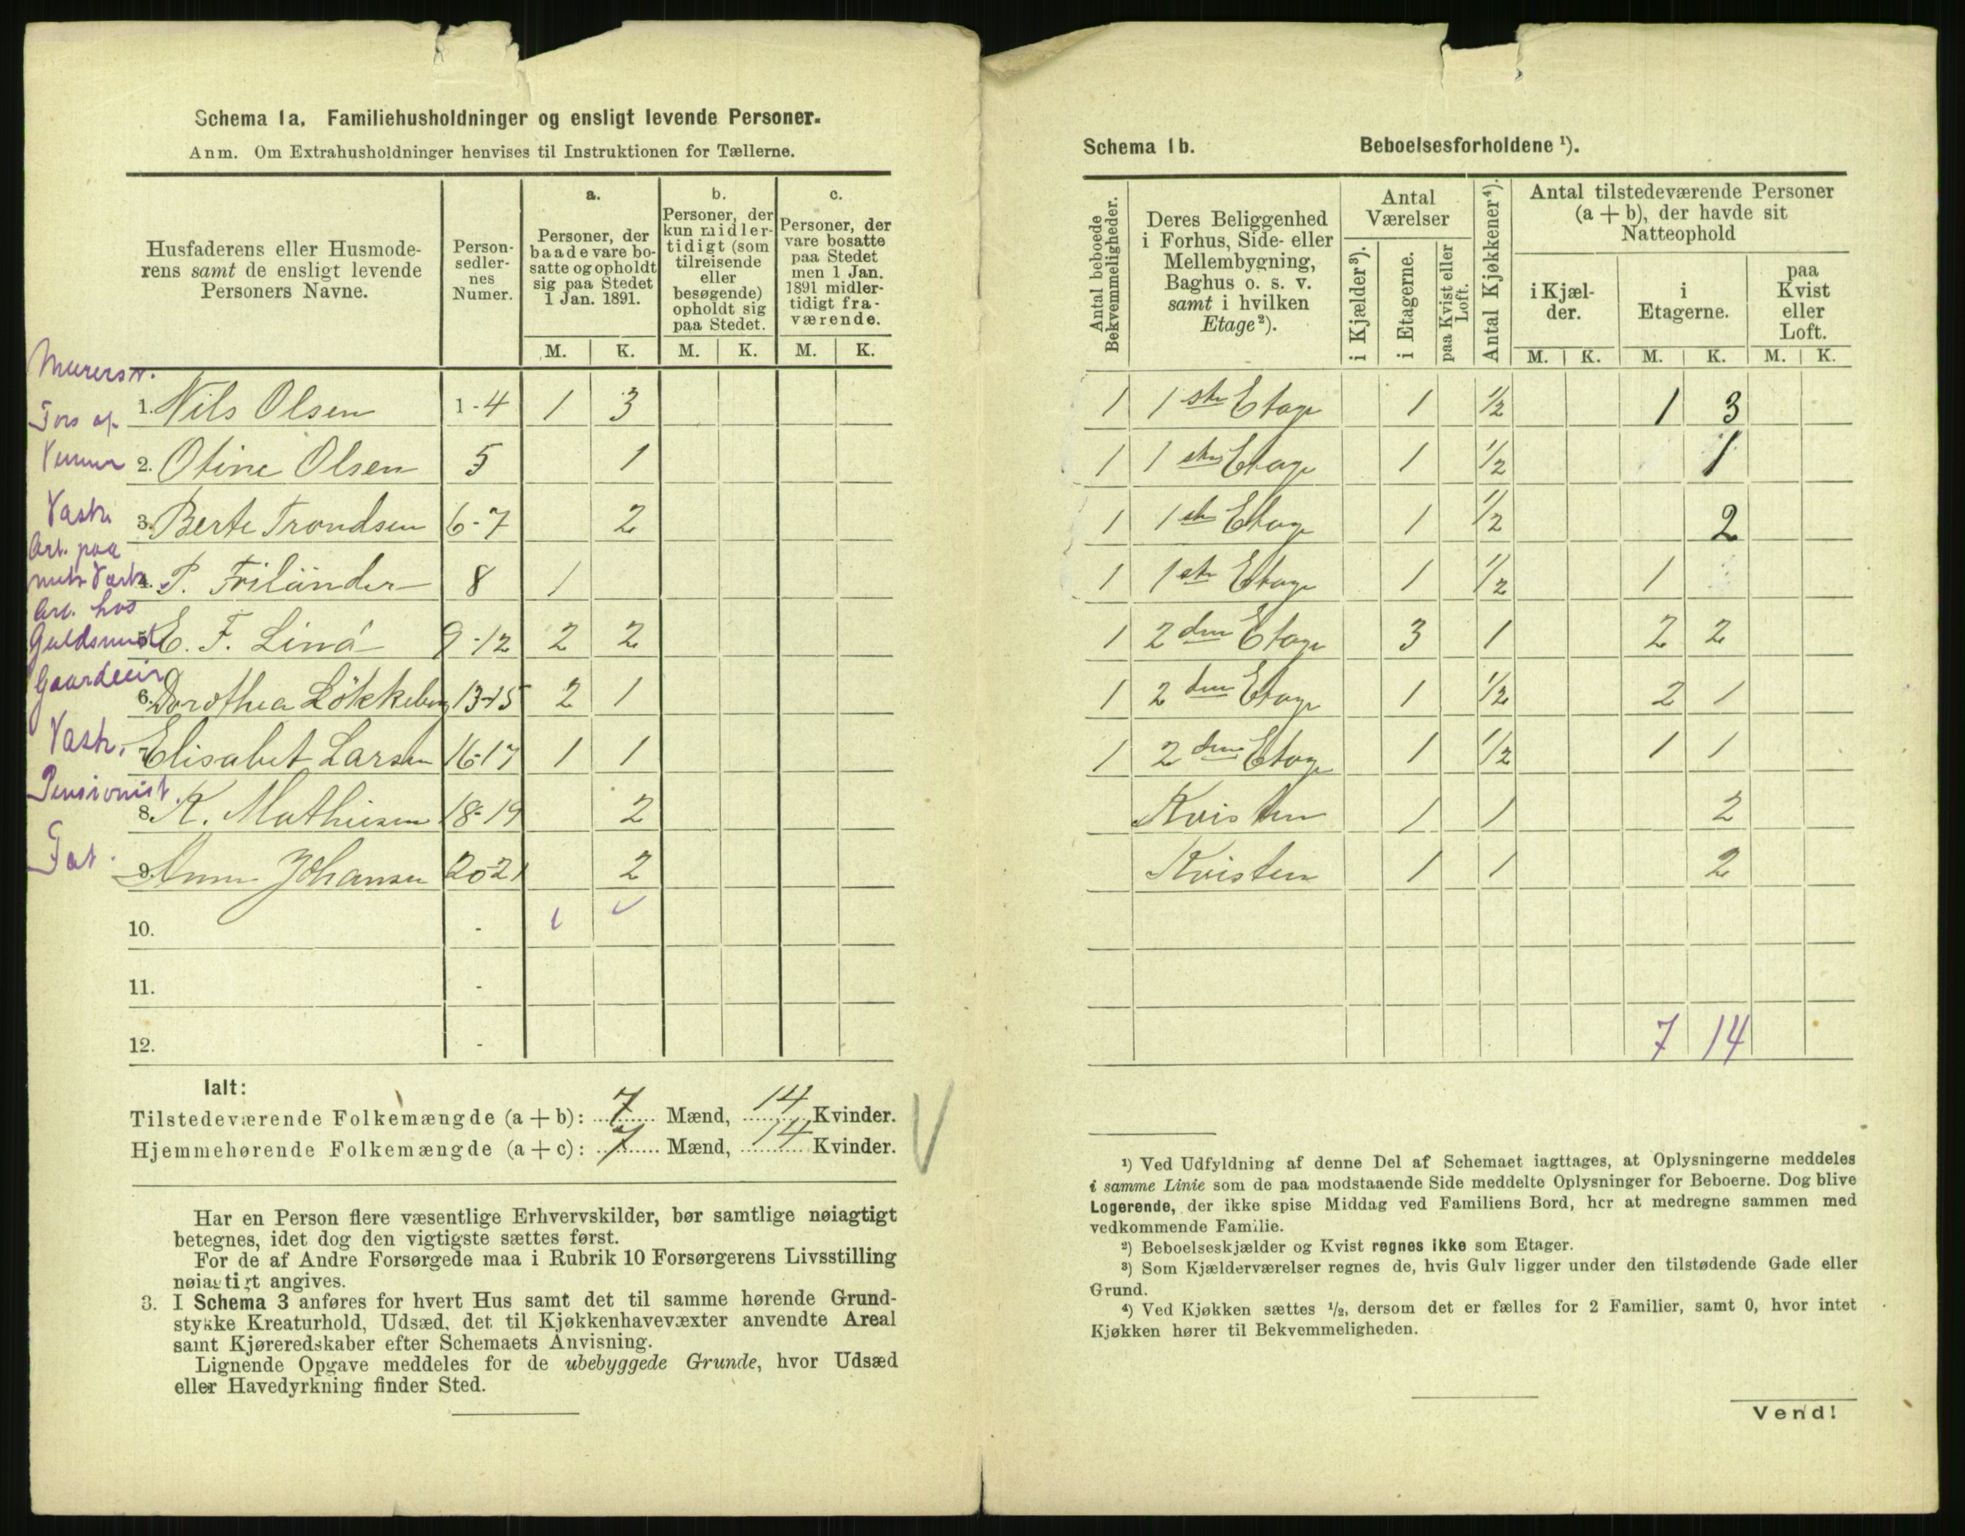 Schema 1a. Familiehusholdninger og ensligt levende Personer.
Anm. Om Extrahusholdninger henvises til Instruktionen for Tællerne.
Husfaderens eller Husmode-
rens samt de ensligt levende
Personers Navne.
Person-
sedler-
nes
Numer.
a.
Personer, der
baade vare bo-
satte og opholdt
sig paa Stedet
1 Jan. 1891.
b.
Personer, der
kun midler-
tidigt (som
tilreisende
eller
besøgende)
opholdt sig
paa Stedet.
c.
Personer, der
vare bosatte
paa Stedet
men 1 Jan.
1891 midler-
tidigt fra-
værende.
M. K. M. K. M. K.
Murerst.
1. Nils Olsen 1-4 1 3
Fors af
2. Otine Olsen 5 1
Vask.
3. Berte Trondsen 6-7 2
Arb. paa
mek Værk
4. P. Friländer 8 1
Arb. hos
Guldsmed
5. E. F. Liná 9-12 2 2
Gaardeier
6. Dorothea Lökkeberg 13-15 2 1
Vask.
7. Elisabet Larsen 16-17 1 1
Pensionist.
8. K. Mathiesen 18-19 2
Fat.
9. Anna Johansen 20-21 2
10. -
11. -
12. -
Ialt:
Tilstedeværende Folkemængde (a + b): 7 Mænd, 14 Kvinder.
Hjemmehørende Folkemængde (a + c): 7 Mænd, 14 Kvinder.
Har en Person flere væsentlige Erhvervskilder, bør samtlige nøiagtigt
betegnes, idet dog den vigtigste sættes først.
For de af Andre Forsørgede maa i Rubrik 10 Forsørgerens Livsstilling
nøiagtigt angives.
3. I Schema 3 anføres for hvert Hus samt det til samme hørende Grund-
stykke Kreaturhold, Udsæd, det til Kjøkkenhavevæxter anvendte Areal
samt Kjøreredskaber efter Schemaets Anvisning.
Lignende Opgave meddeles for de ubebyggede Grunde, hvor Udsæd
eller Havedyrkning finder Sted.
Schema 1b. Beboelsesforholdene ¹).
Antal beboede
Bekvemmeligheder.
Deres Beliggenhed
i Forhus, Side- eller
Mellembygning,
Baghus o. s. v.
samt i hvilken
Etage²).
Antal
Værelser
i Kjælder³).
i Etagerne.
paa Kvist eller
Loft.
Antal Kjøkkener⁴).
Antal tilstedeværende Personer
(a + b), der havde sit
Natteophold
i Kjæl-
der.
i
Etagerne.
paa
Kvist
eller
Loft.
M. K. M. K. M. K.
1 1ste Etage 1 ½ 1 3
1 1ste Etage 1 ½ 1
1 1ste Etage 1 ½ 2
1 1ste Etage 1 ½ 1
1 2den Etage 3 1 2 2
1 2den Etage 1 ½ 2 1
1 2den Etage 1 ½ 1 1
Kvisten 1 1 2
Kvisten 1 1 2
7 14
¹) Ved Udfyldning af denne Del af Schemaet iagttages, at Oplysningerne meddeles
i samme Linie som de paa modstaaende Side meddelte Oplysninger for Beboerne. Dog blive
Logerende, der ikke spise Middag ved Familiens Bord, her at medregne sammen med
vedkommende Familie.
²) Beboelseskjælder og Kvist regnes ikke som Etager.
³) Som Kjælderværelser regnes de, hvis Gulv ligger under den tilstødende Gade eller
Grund.
⁴) Ved Kjøkken sættes ½, dersom det er fælles for 2 Familier, samt 0, hvor intet
Kjøkken hører til Bekvemmeligheden.
Vend!